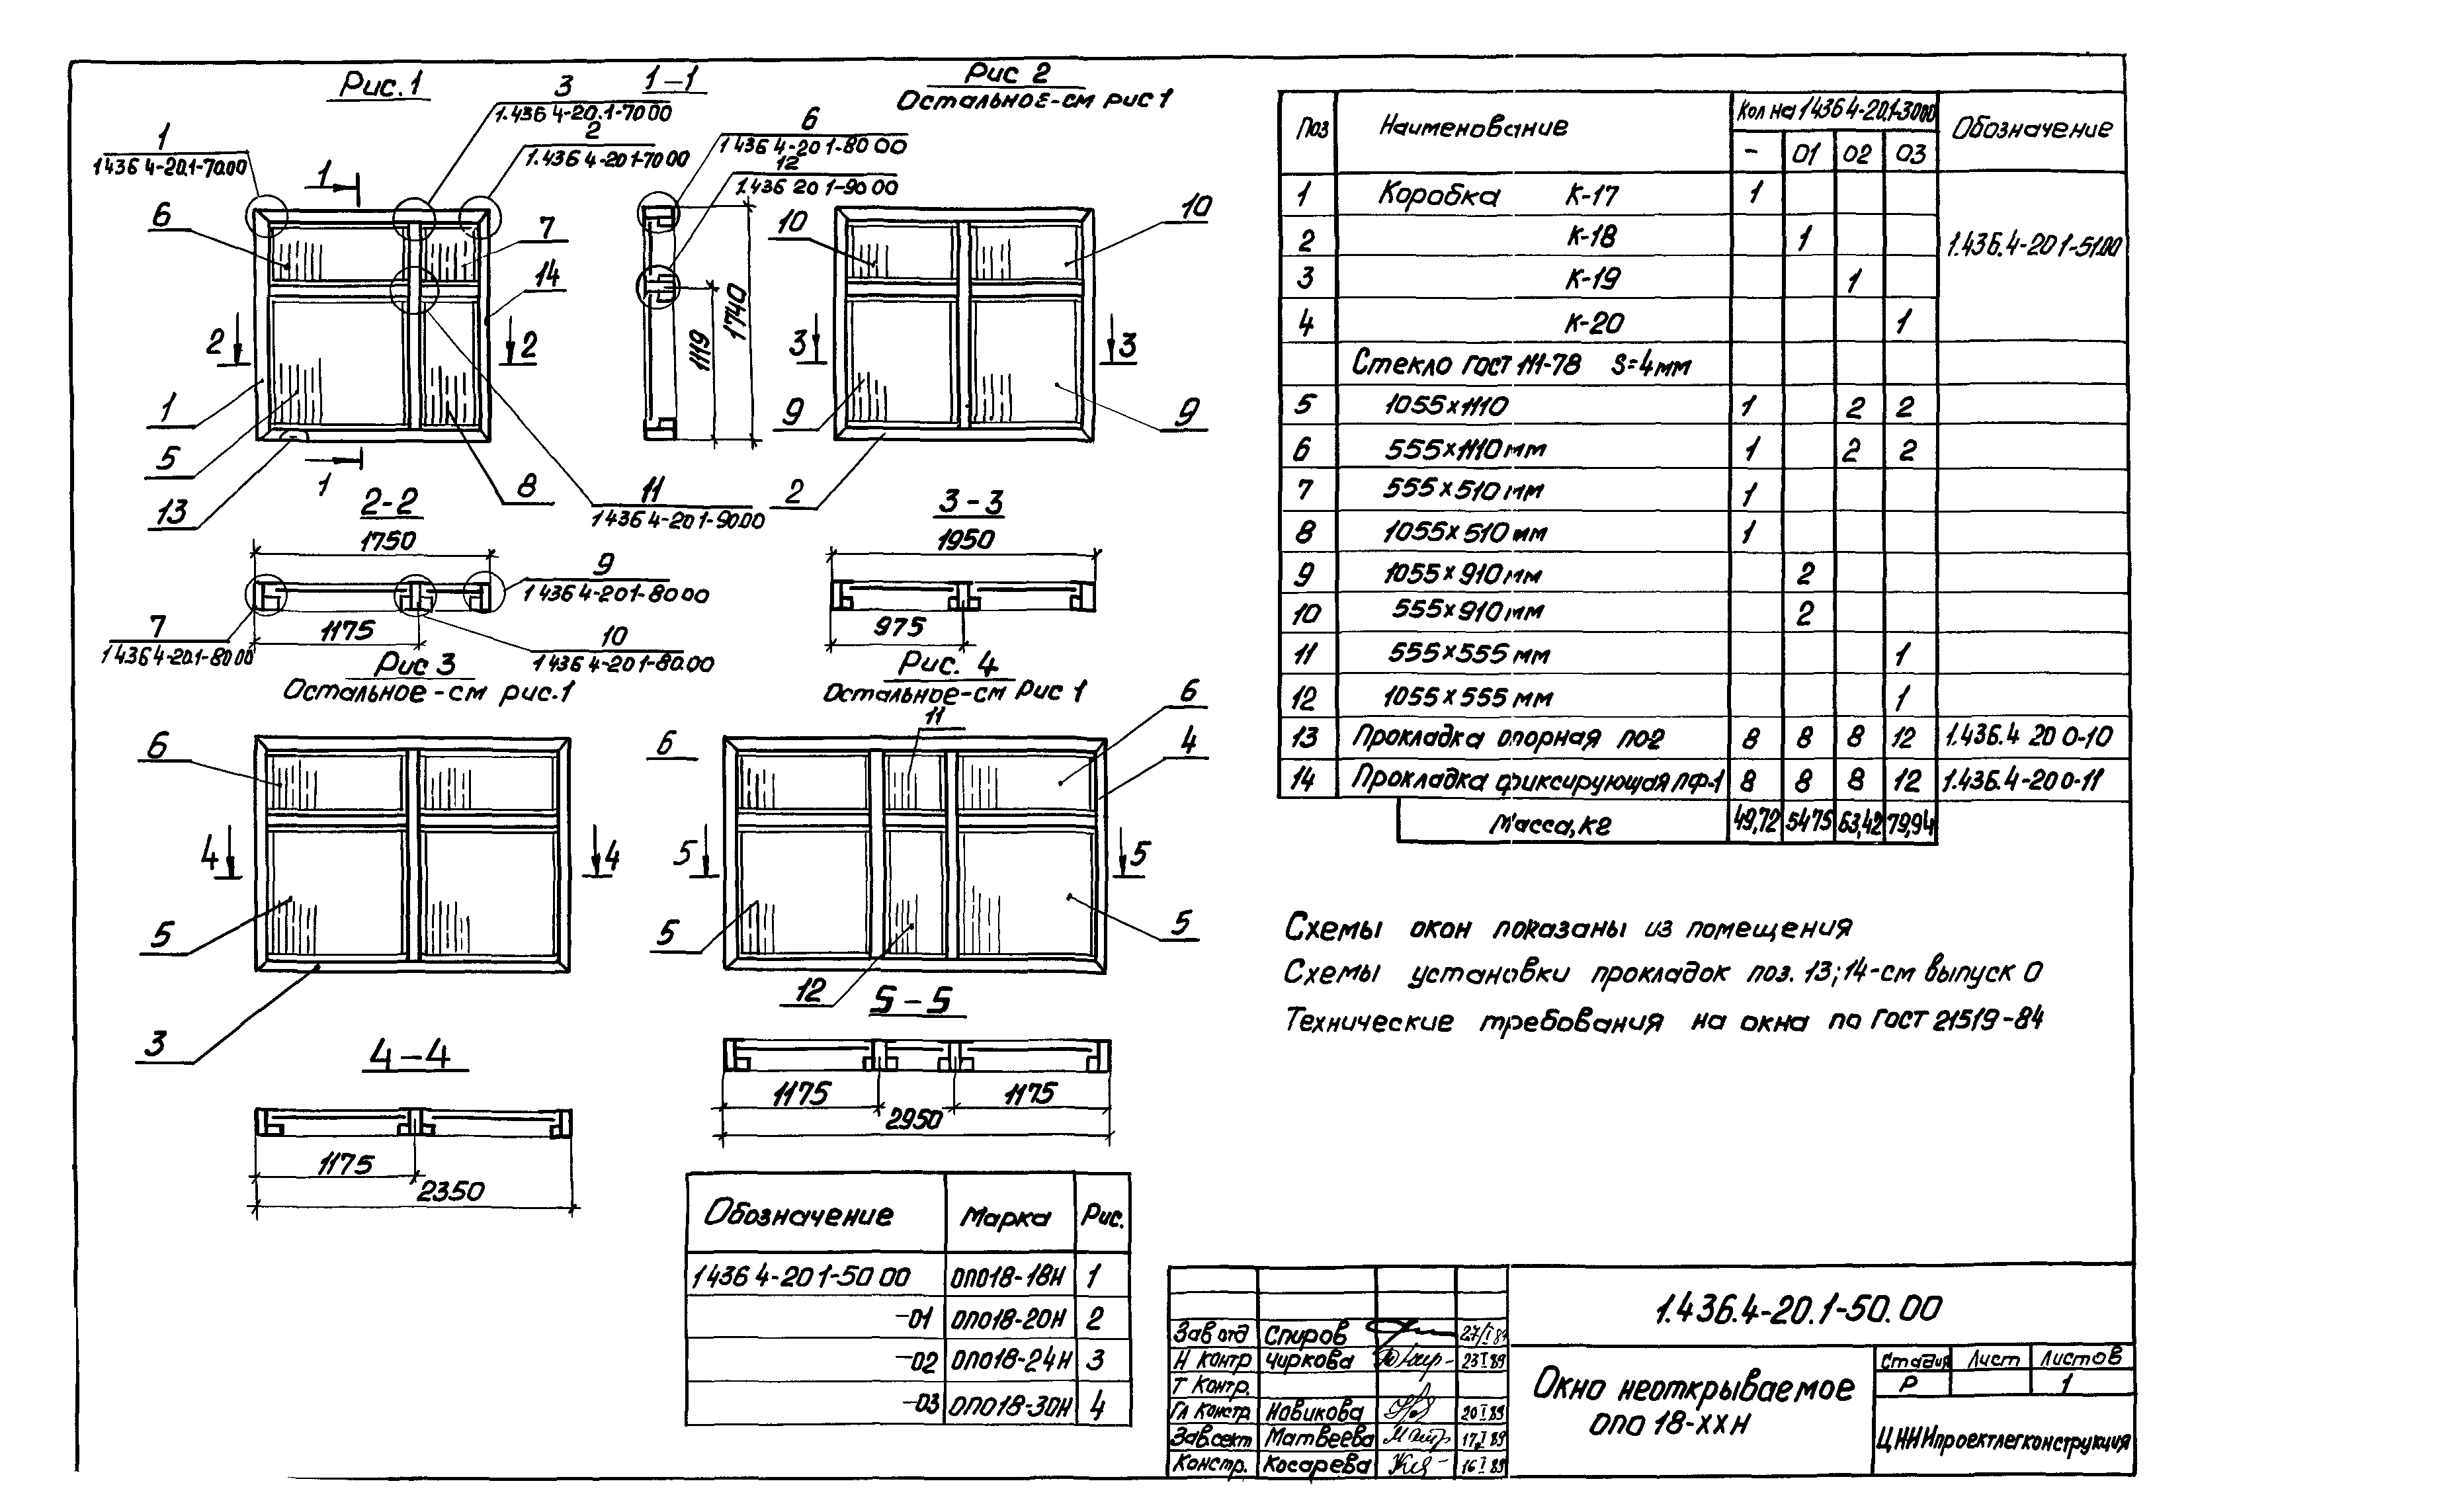 Рис.1
3
1.436 4-20.1-70 00
1-1
2
1.436 4-20 1-70 00
1
1 436 4-20.1-70.00
1
6
7
14
2
2
1
5
13
1
8
11
1 436 4-20 1-90.00
6
1 436 4-20 1-80 00
12
1.436 20 1-90 00
1740
1119
Рис 2
Остальное-см рис 1
10
10
3
3
9
9
2
2-2
1750
9
1 436 4-20 1-80 00
1175
7
1 436 4-20.1-80 00
10
1 436 4-20 1-80.00
3-3
1950
975
Рис 3
Остальное-см рис.1
6
4
4
5
3
4-4
1175
2350
Рис. 4
Остальное-см Рис 1
11
6
6
4
5
5
5
5
12
5-5
1175
1175
2950
Обозначение Марка Рис.
1 436 4-20 1-50 00 ОПО18-18Н 1
-01 ОПО18-20Н 2
-02 ОПО18-24Н 3
-03 ОПО18-30Н 4
Поз Наименование Кол на 1 436 4-20.1-30 00 Обозначение
- 01 02 03
1 Коробка К-17 1
2 К-18 1 1.436.4-20 1-51.00
3 К-19 1
4 К-20 1
Стекло ГОСТ 111-78 S=4мм
5 1055х1110 1 2 2
6 555х1110мм 1 2 2
7 555х510мм 1
8 1055х510мм 1
9 1055х910мм 2
10 555х910мм 2
11 555х555мм 1
12 1055х555мм 1
13 Прокладка опорная ПО-2 8 8 8 12 1.436.4 20 0-10
14 Прокладка фиксирующая ПФ-1 8 8 8 12 1.436.4-20 0-11
Масса,кг 49,72 5475 63,42 79,94
Схемы окон показаны из помещения
Схемы установки прокладок поз. 13;14-см выпуск 0
Технические требования на окна по ГОСТ 21519-84
1.436.4-20.1-50.00
Зав отд Спиров 27/I 89
Н контр Чиркова 23 I 89
Т Контр.
Гл констр Новикова 20 I 89
Зав.сект Матвеева 17 I 89
Констр. Косарева 16 I 89
Окно неоткрываемое
ОПО 18-ххН
Стадия Лист Листов
Р 1
ЦНИИпроектлегконструкция